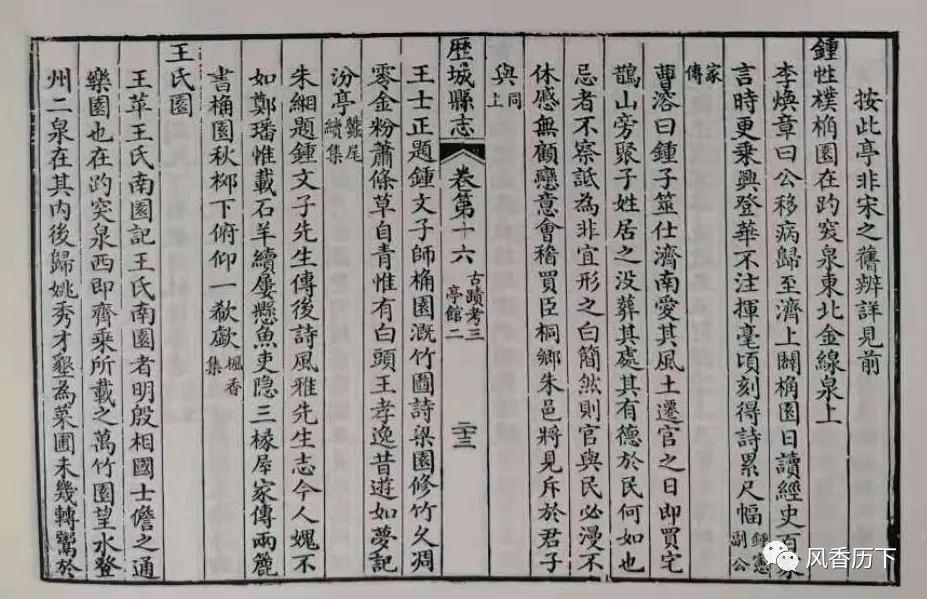 按此亭非宋之舊辨詳見前
鍾性樸桷園在趵突泉東北金線泉上
李煥章曰公移病歸至濟上闢桷園日讀經史百家
言時更乘興登華不注揮毫頃刻得詩累尺幅 鍾憲副公
家傳
曹溶曰鍾子筮仕濟南愛其風土遷官之日即買宅
鵲山旁聚子姓居之没葬其處其有德於民何如也
忌者不察詆為非宜形之白簡然則官與民必漫不
休感無顧戀意會稽買臣桐鄉朱邑將見斥於君子
與 同上
歷城縣志 卷第十六 古蹟考三 亭館二 二十三
王士正題鍾文子師桷園溉竹圖詩梁園修竹久凋
零金粉蕭條草自青惟有白頭王孝逸昔遊如夢記
汾亭 蠶尾續集
朱緗題鍾文子先生傳後詩風雅先生志今人媿不
如鄭璠惟載石羊續屢懸魚吏隐三椽屋家傳兩簏
書桷園秋柳下俯仰一欷歔 楓香集
王氏園
王苹王氏南園記王氏南園者明殷相國士儋之通
樂園也在趵突泉西即齊乘所載之萬竹園望水登
州二泉在其内後歸姚秀才墾為菜圃未幾轉鬻於
风香历下